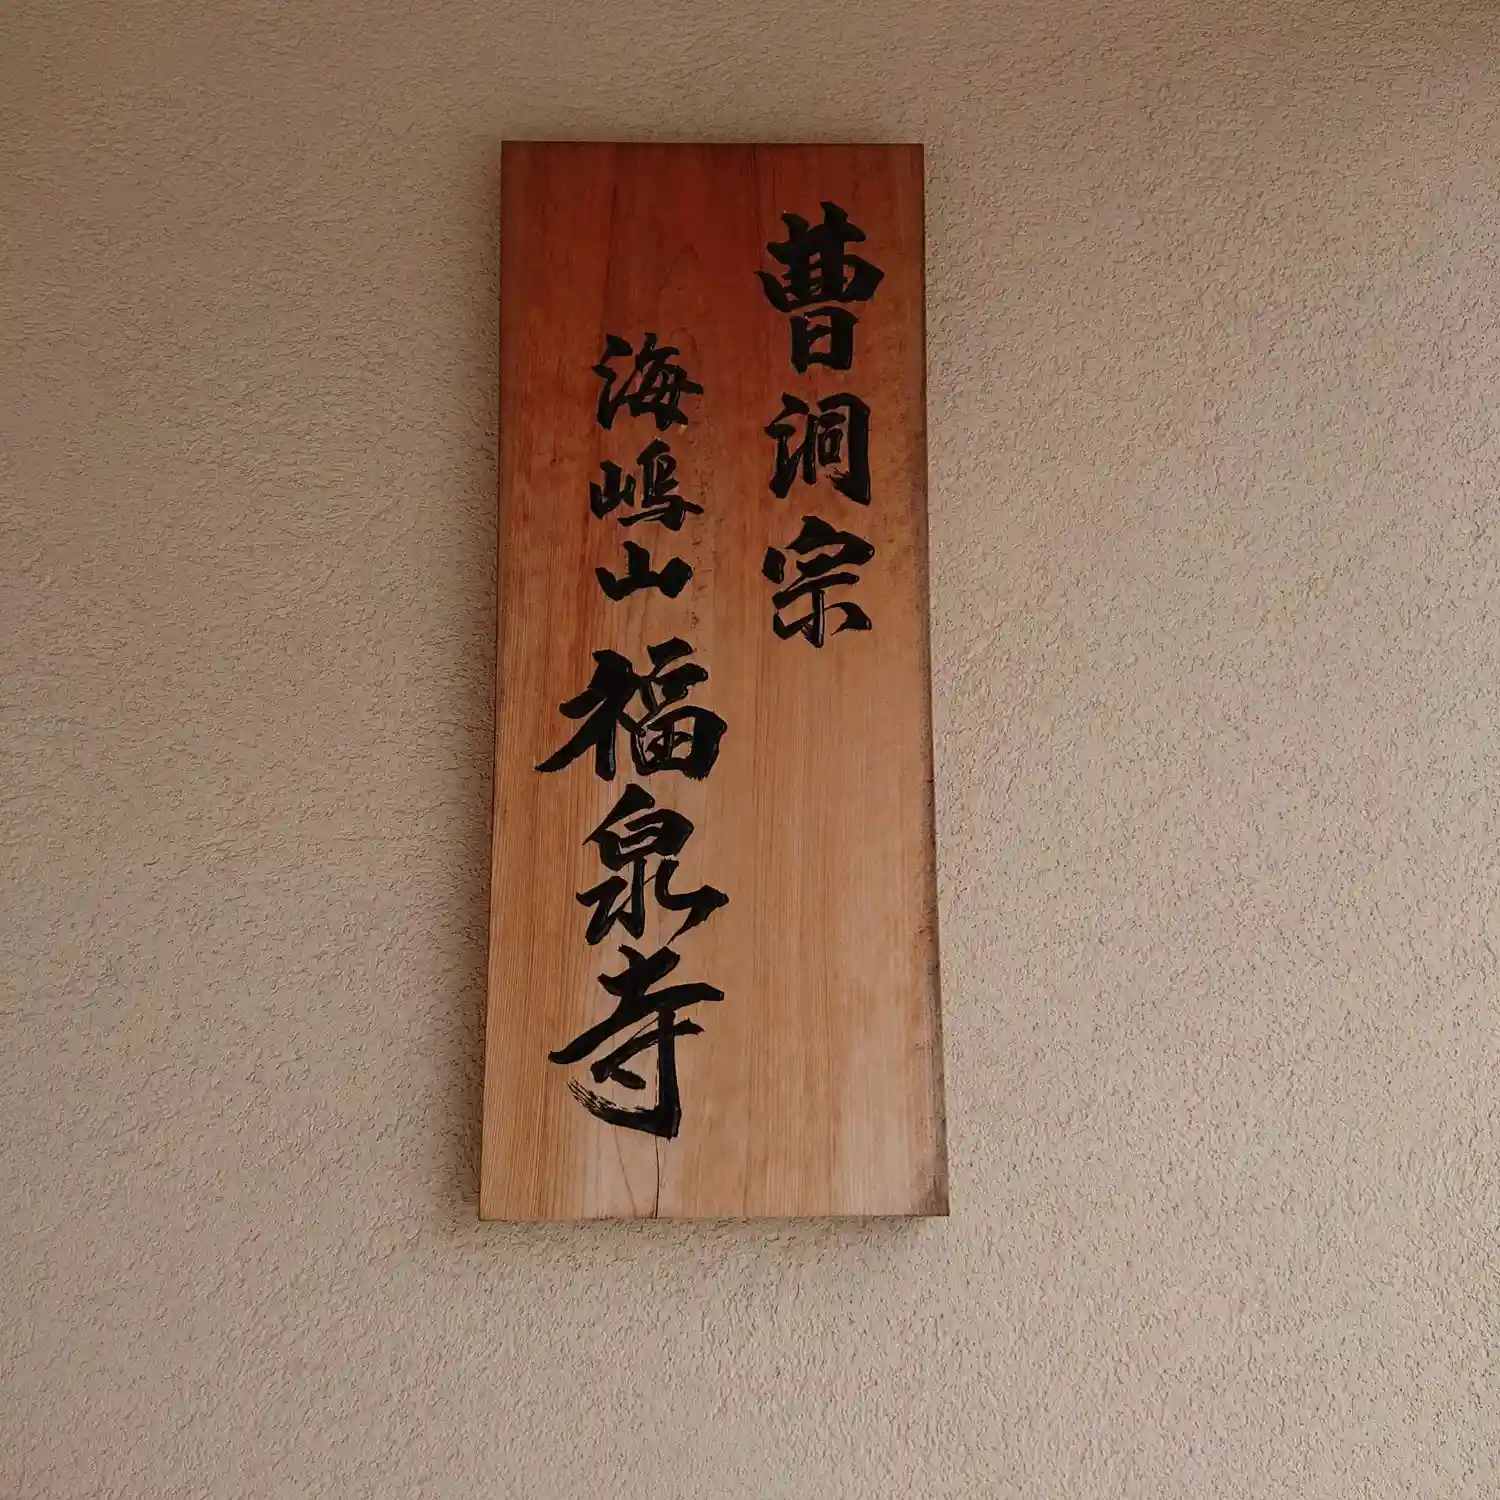 曹洞宗
海嶋山 福泉寺